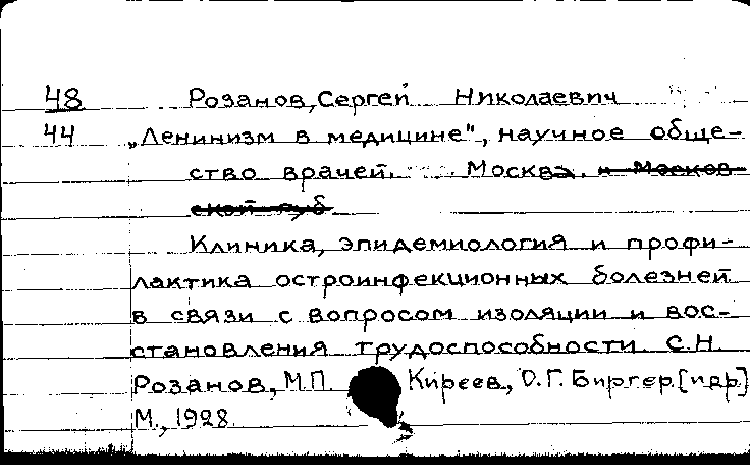 48 Розанов, Сергей Николаевич
44 „Ленинизм в медицине", научное обще-
ство врачей. Москва. и Москов-
ской губ.
Клиника, эпидемиология и профи-
лактика остроинфекционных болезней
в связи с вопросом изоляции и вос-
становления трудоспособности. С.Н.
Розанов, М.П. Киреев, О.Г. Биргер. [и др.]
М., 1928.